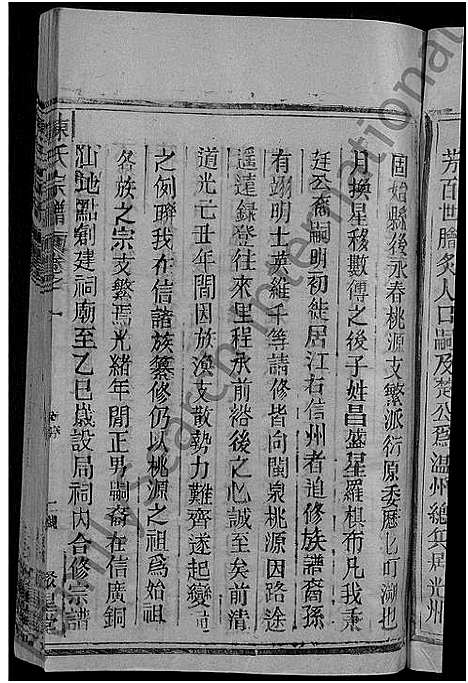 芳百世膾炙人口嗣及楚公爲溫州總兵居光州
固始縣後永春桃源支繁派衍原委歷匕可溯也
月換星移數傳之後子姓昌盛星羅棋布凡我秉
廷公裔嗣明初徙居江右信州者迨修族譜裔孫
有翊明士英維千等請修皆向閩泉桃源因路途
遥達錄登往來里程承前裕後之心誠至矣前清
道光元廿年間因族渙支散勢力難齊遂起變
之例聯我在信諸族纂修仍以桃源之祖爲始祖
各族之宗支繁焉光緒年間正男嗣裔在信廣銅
山地點創建祠廟至乙巳歲設局祠内合修宗譜
陳氏宗譜 卷之一